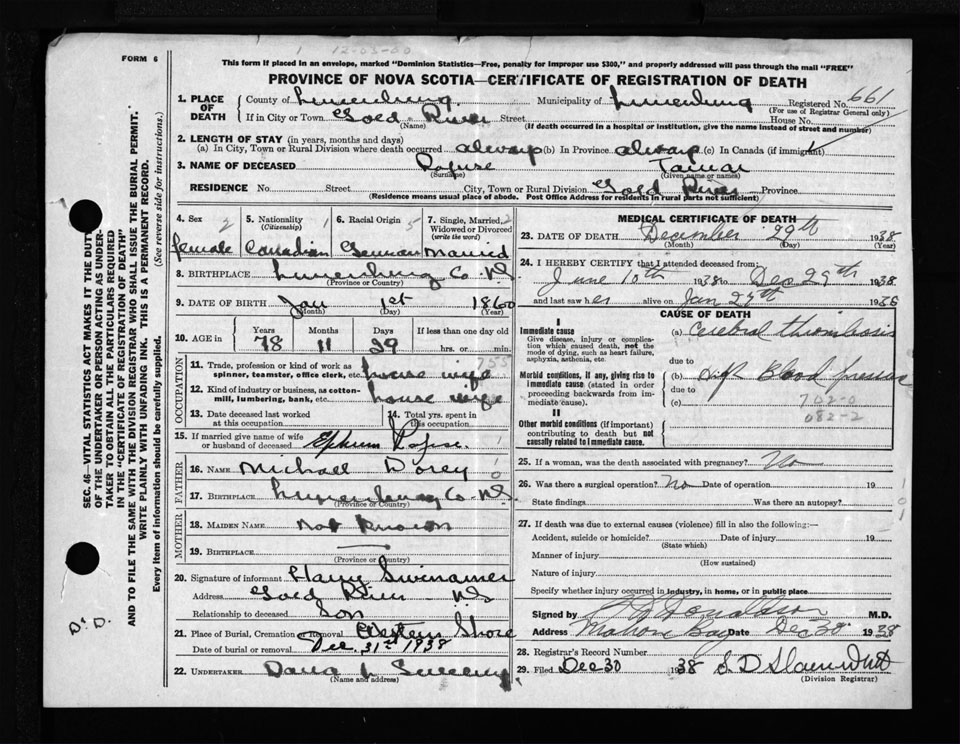 1 12-03-00
FORM 6
This form if placed in an envelope, marked "Dominion Statistics—Free, penalty for improper use $300," and properly addressed will pass through the mail "FREE"
PROVINCE OF NOVA SCOTIA—CERTIFICATE OF REGISTRATION OF DEATH
1. PLACE OF DEATH
County of Lunenburg Municipality of Lunenburg Registered No. 661
(For use of Registrar General only)
If in City or Town Gold River Street House No.
(Name) (If death occurred in a hospital or institution, give the name instead of street and number)
2. LENGTH OF STAY (in years, months and days)
(a) In City, Town or Rural Division where death occurred always (b) In Province always (c) In Canada (if immigrant)
3. NAME OF DECEASED Rafuse Tamar
(Surname) (Given name or names)
RESIDENCE No. Street City, Town or Rural Division Gold River Province
(Residence means usual place of abode. Post Office Address for residents in rural parts not sufficient)
4. Sex 2 female
5. Nationality (Citizenship) 1 Canadian
6. Racial Origin 5 German
7. Single, Married, Widowed or Divorced (write the word) 2 Married
8. BIRTHPLACE Lunenburg Co NS
(Province or Country)
9. DATE OF BIRTH Jan 1st 1860
(Month) (Day) (Year)
10. AGE in Years 78 Months 11 Days 29 If less than one day old
hrs. or min.
OCCUPATION
11. Trade, profession or kind of work as spinner, teamster, office clerk, etc. house wife
12. Kind of industry or business, as cotton-mill, lumbering, bank, etc. house wife
13. Date deceased last worked at this occupation
14. Total yrs. spent in this occupation
15. If married give name of wife or husband of deceased Ephrim Rafuse
FATHER
16. NAME Michael Dorey
17. BIRTHPLACE Lunenburg Co. NS.
(Province or Country)
MOTHER
18. MAIDEN NAME Not Known
19. BIRTHPLACE
(Province or Country)
20. Signature of informant Harry Swinamer
Address Gold River NS
Relationship to deceased Son
21. Place of Burial, Cremation or Removal Western Shore
Date of burial or removal Dec. 31st 1938
22. UNDERTAKER
(Name and address)
MEDICAL CERTIFICATE OF DEATH
23. DATE OF DEATH December 29th 1938
(Month) (Day) (Year)
24. I HEREBY CERTIFY that I attended deceased from:
June 10th 1938 to Dec 29th 1938
and last saw her alive on Jan 27th
CAUSE OF DEATH
I
Immediate cause
Give disease, injury or complication which caused death, not the mode of dying, such as heart failure, asphyxia, asthenia, etc.
(a) Cerebral thrombosis
due to
Morbid conditions, if any, giving rise to immediate cause (stated in order proceeding backwards from immediate cause).
(b) High Blood pressure
due to
(c) 702-0
082-2
II
Other morbid conditions (if important) contributing to death but not causally related to immediate cause.
25. If a woman, was the death associated with pregnancy? No
26. Was there a surgical operation? No Date of operation 19
State findings Was there an autopsy?
27. If death was due to external causes (violence) fill in also the following:—
Accident, suicide or homicide? Date of injury 19
(State which)
Manner of injury
(How sustained)
Nature of injury
Specify whether injury occurred in industry, in home, or in public place
Signed by Donaldson M.D.
Address Mahone Bay Date Dec 30 1938
28. Registrar's Record Number
29. Filed Dec 30 1938
(Division Registrar)
SEC. 46—VITAL STATISTICS ACT MAKES IT THE DUTY
OF THE UNDERTAKER OR PERSON ACTING AS UNDER-
TAKER TO OBTAIN ALL THE PARTICULARS REQUIRED
IN THE "CERTIFICATE OF REGISTRATION OF DEATH"
AND TO FILE THE SAME WITH THE DIVISION REGISTRAR WHO SHALL ISSUE THE BURIAL PERMIT.
WRITE PLAINLY WITH UNFADING INK. THIS IS A PERMANENT RECORD.
Every item of information should be carefully supplied. (See reverse side for instructions.)
D.D.